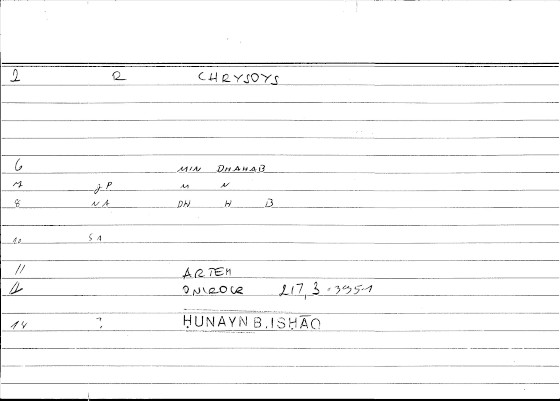 2 2 CHRYSOYS
6 MIN DHAHAB
7 JP M N
8 NA DH H B
10 SA
11 ARTEM
12 ONIROCR 217,3
14 ḤUNAYN B.ISḤĀQ